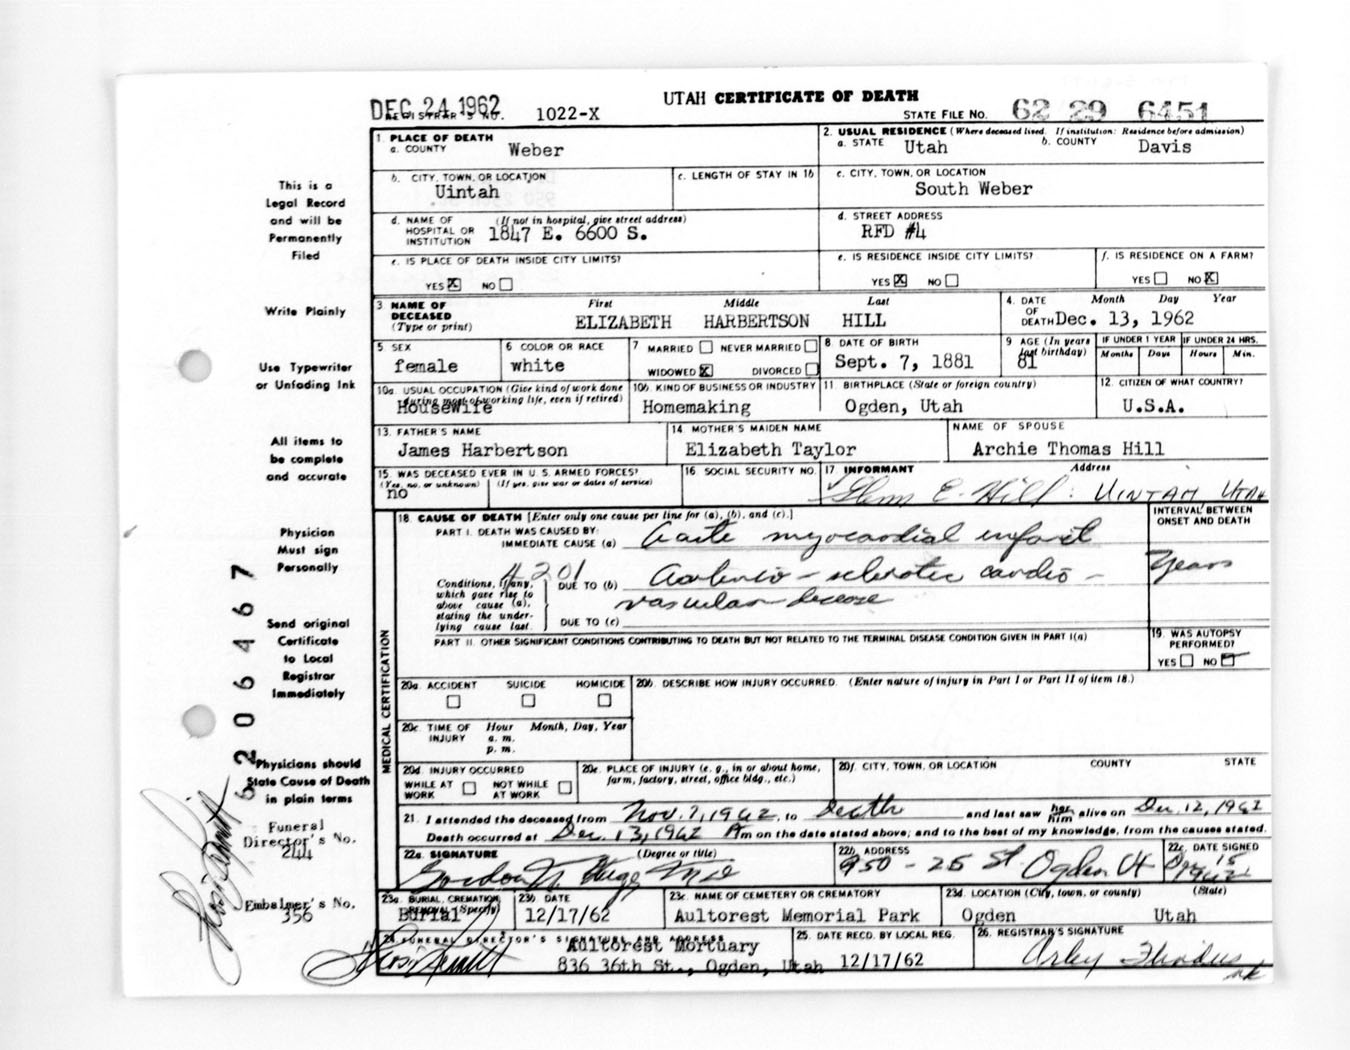 DEC 24 1962
REGISTRAR'S NO. 1022-X
UTAH CERTIFICATE OF DEATH
STATE FILE NO. 62 29 6451
1. PLACE OF DEATH
a. COUNTY Weber
2. USUAL RESIDENCE (Where deceased lived. If institution: Residence before admission)
a. STATE Utah b. COUNTY Davis
b. CITY, TOWN, OR LOCATION Uintah
c. LENGTH OF STAY IN 1b
c. CITY, TOWN, OR LOCATION
South Weber
d. NAME OF HOSPITAL OR INSTITUTION (If not in hospital, give street address)
1847 E. 6600 S.
d. STREET ADDRESS
RFD #4
e. IS PLACE OF DEATH INSIDE CITY LIMITS?
YES X NO
e. IS RESIDENCE INSIDE CITY LIMITS?
YES X NO
f. IS RESIDENCE ON A FARM?
YES NO X
3 NAME OF DECEASED (Type or print)
First Middle Last
ELIZABETH HARBERTSON HILL
4. DATE OF DEATH Month Day Year
Dec. 13, 1962
5. SEX
female
6 COLOR OR RACE
white
7 MARRIED NEVER MARRIED
WIDOWED X DIVORCED
8 DATE OF BIRTH
Sept. 7, 1881
9 AGE (In years last birthday)
81
IF UNDER 1 YEAR IF UNDER 24 HRS.
Months Days Hours Min.
10a. USUAL OCCUPATION (Give kind of work done during most of working life, even if retired)
Housewife
10b. KIND OF BUSINESS OR INDUSTRY
Homemaking
11. BIRTHPLACE (State or foreign country)
Ogden, Utah
12. CITIZEN OF WHAT COUNTRY?
U.S.A.
13. FATHER'S NAME
James Harbertson
14 MOTHER'S MAIDEN NAME
Elizabeth Taylor
NAME OF SPOUSE
Archie Thomas Hill
15 WAS DECEASED EVER IN U.S. ARMED FORCES?
(Yes, no, or unknown) (If yes, give war or dates of service)
no
16 SOCIAL SECURITY NO.
17. INFORMANT Address
Glenn E. Hill: UINTAH UTAH
18. CAUSE OF DEATH [Enter only one cause per line for (a), (b), and (c).]
INTERVAL BETWEEN ONSET AND DEATH
PART I. DEATH WAS CAUSED BY:
IMMEDIATE CAUSE (a) Acute myocardial infarct
4201
Conditions, if any, which gave rise to above cause (a), stating the underlying cause last.
DUE TO (b) Arterio-sclerotic cardio-
years
vascular disease
DUE TO (c)
PART II. OTHER SIGNIFICANT CONDITIONS CONTRIBUTING TO DEATH BUT NOT RELATED TO THE TERMINAL DISEASE CONDITION GIVEN IN PART I(a)
19. WAS AUTOPSY PERFORMED?
YES NO
MEDICAL CERTIFICATION
20a. ACCIDENT SUICIDE HOMICIDE
20b. DESCRIBE HOW INJURY OCCURRED. (Enter nature of injury in Part I or Part II of item 18.)
20c. TIME OF INJURY Hour Month, Day, Year
a. m.
p. m.
20d. INJURY OCCURRED
WHILE AT WORK NOT WHILE AT WORK
20e. PLACE OF INJURY (e. g., in or about home, farm, factory, street, office bldg., etc.)
20f. CITY, TOWN, OR LOCATION COUNTY STATE
21. I attended the deceased from Nov. 7, 1962, to Death and last saw her him alive on Dec. 12, 1962
Death occurred at Dec. 13, 1962 m on the date stated above; and to the best of my knowledge, from the causes stated.
22a. SIGNATURE (Degree or title)
Gordon MD
22b. ADDRESS
950 - 25 St. Ogden Ut
22c. DATE SIGNED
Dec 15 1962
23a. BURIAL, CREMATION, REMOVAL (Specify)
Burial
23b DATE
12/17/62
23c NAME OF CEMETERY OR CREMATORY
Aultorest Memorial Park
23d. LOCATION (City, town, or county) (State)
Ogden Utah
24. FUNERAL DIRECTOR'S SIGNATURE AND ADDRESS
Aultorest Mortuary
836 36th St., Ogden, Utah
25. DATE RECD. BY LOCAL REG.
12/17/62
26. REGISTRAR'S SIGNATURE
This is a
Legal Record
and will be
Permanently
Filed
Write Plainly
Use Typewriter
or Unfading Ink
All items to
be complete
and accurate
Physician
Must sign
Personally
Send original
Certificate
to Local
Registrar
Immediately
Physicians should
State Cause of Death
in plain terms
Funeral
Director's No.
244
Embalmer's No.
356
6206467